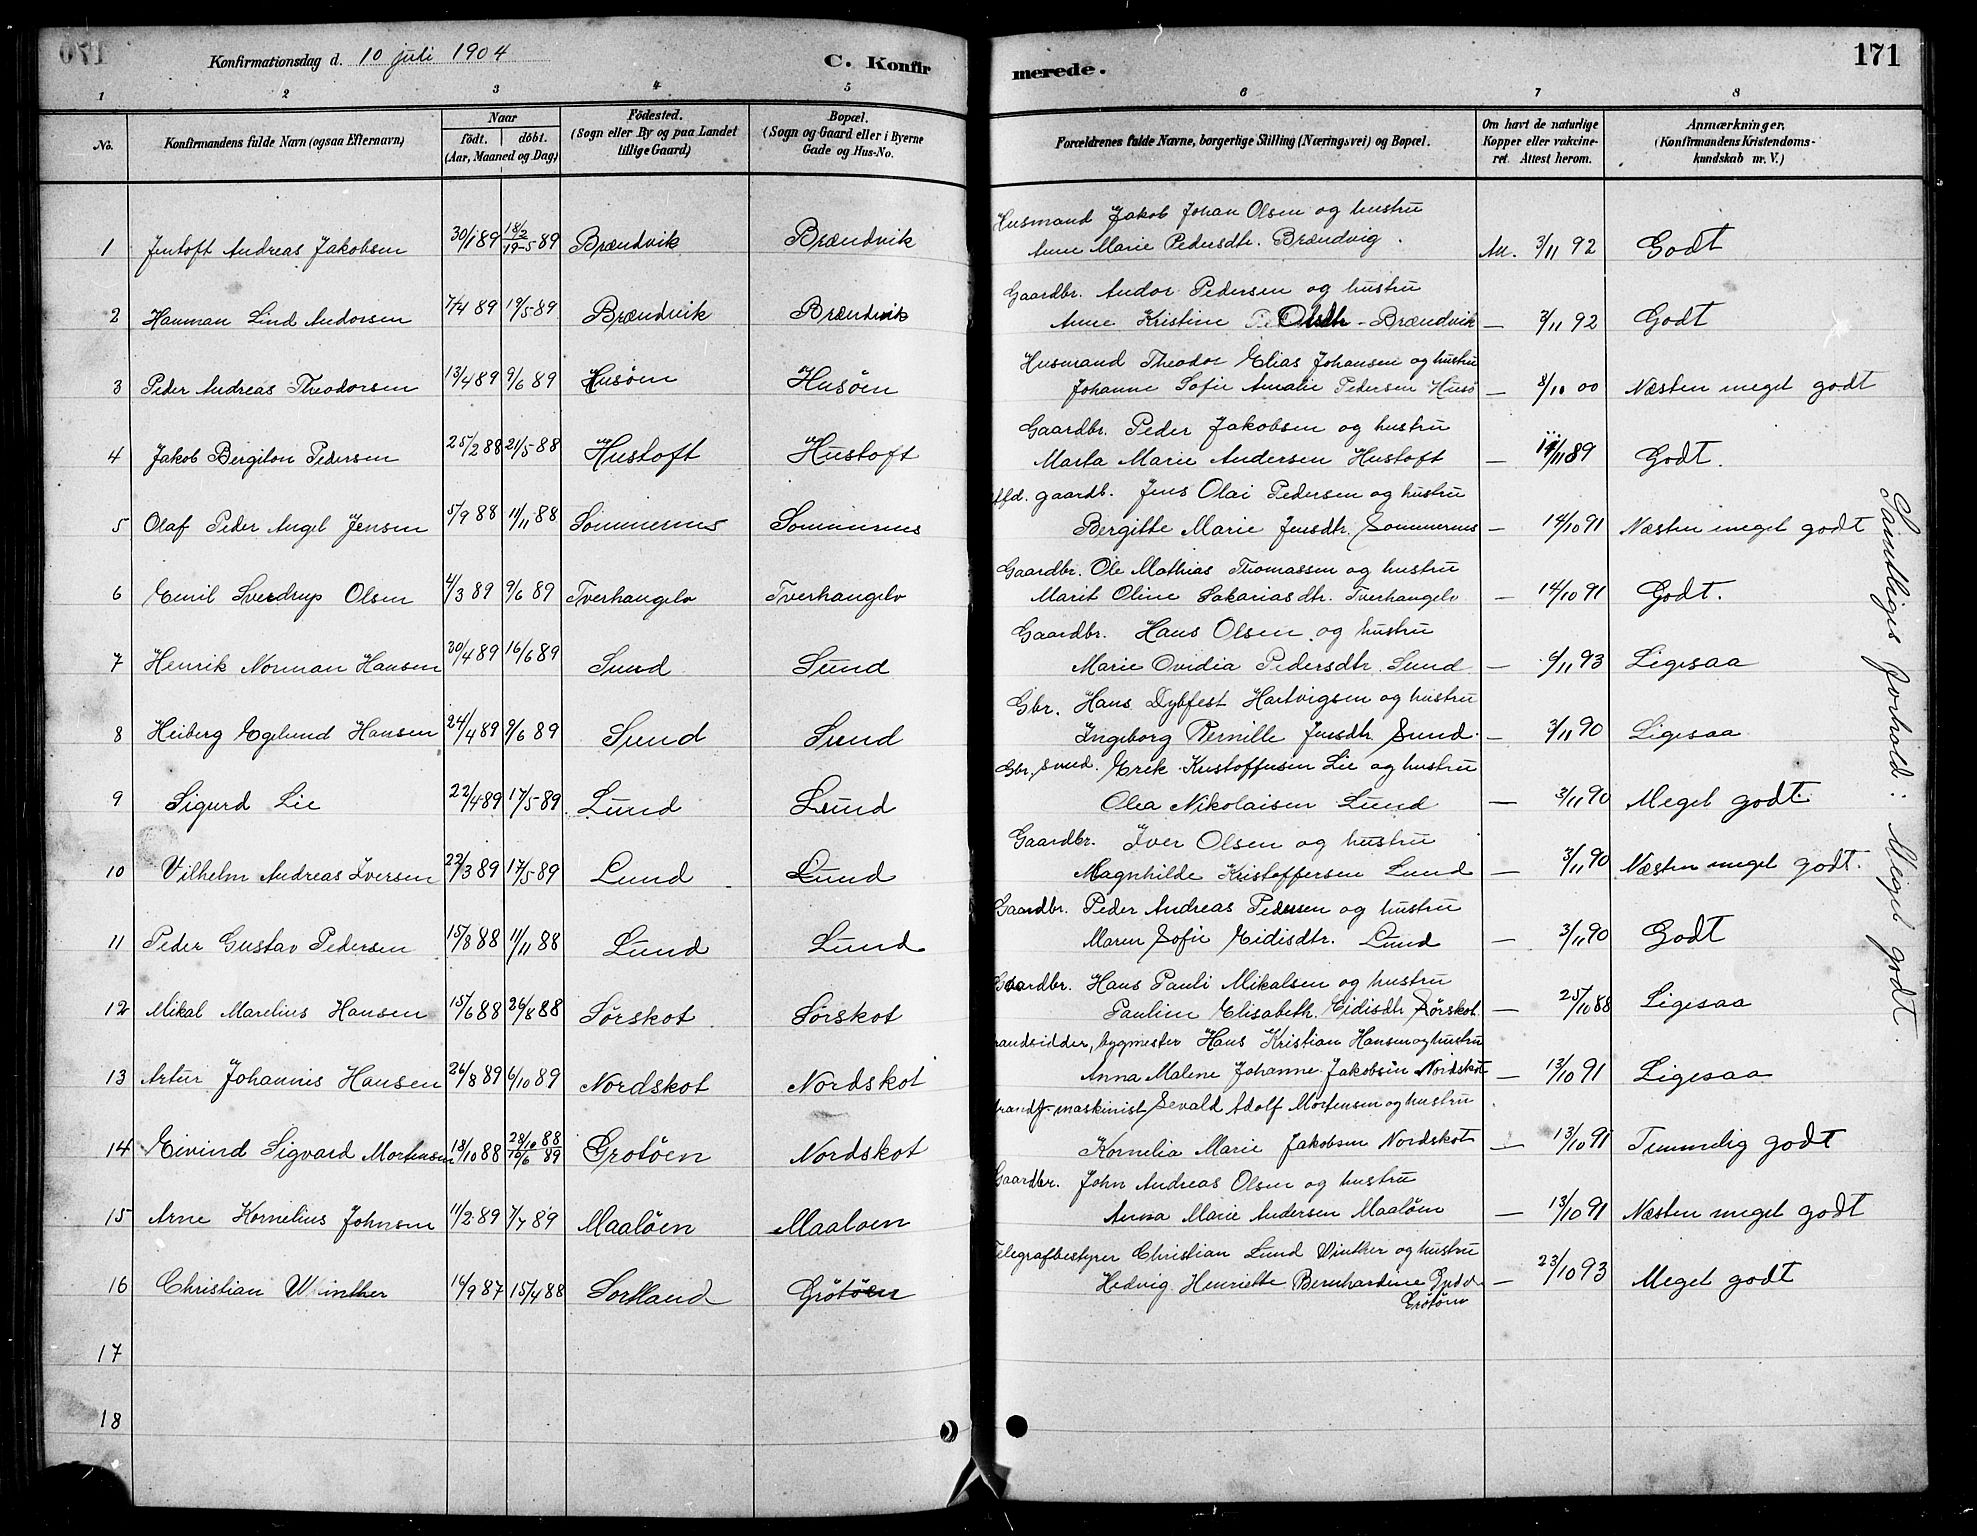 170
Konfirmationsdag d. 10 juli 1904
C. Konfir
merede.
171
1 2 3 4 5 6 7 8
No.
Konfirmandens fulde Navn (ogsaa Efternavn)
Naar
födt. döbt.
(Aar, Maaned og Dag)
Födested.
(Sogn eller By og paa Landet
tillige Gaard)
Bopæl.
(Sogn og Gaard eller i Byerne
Gade og Hus-No.
Forældrenes fulde Navne, borgerlige Stilling (Næringsvei) og Bopæl.
Om havt de naturlige
Kopper eller vakcine-
ret. Attest herom.
Anmærkninger.
(Konfirmandens Kristendoms-
kundskab m. V.)
Husmand Jakob Johan Olsen og hustru
1 Jentoft Andreas Jakobsen 30/1 89 18/2 19-5 89 Brændvik Brændvik Anne Marie Pedersdtr. Brændvig. Au. 3/11 92 Godt
Gaardbr. Andor Pedersen og hustru
2 Hanman Lind Andorsen 7/4 89 19/5 89 Brændvik Brændvik Anne Kristine Olsdtr - Brændvik — 3/11 92 Godt
Husmand Theodor Elias Johansen og hustru
3 Peder Andreas Theodorsen 13/4 89 9/6 89 Husöen Husöen Johanne Sofie Amalie Pedersen Husö — 8/10 00 Næsten meget godt
Gaardbr. Peder Jakobsen og hustru
4 Jakob Bergiton Pedersen 25/2 88 21/5 88 Hustoft Hustoft Marta Marie Andersen Hustoft — 14/11 89 Godt.
gaardb. Jens Olai Pedersen og hustru
5 Olaf Peder Angel Jensen 5/9 88 11/11 88 Sommernes Sommernes Bergitte Marie Jensdtr. Sommernes — 14/10 91 Næsten meget godt
Gaardbr. Ole Mathias Thomassen og hustru
6 Emil Sverdrup Olsen 4/3 89 9/6 89 Tverhangelv Tverhangelv Marit Oline Sakariasdtr. Tverhangelv — 14/10 91 Godt.
Gaardbr. Hans Olsen og hustru
7 Henrik Norman Hansen 30/4 89 16/6 89 Sund Sund Marie Ovidia Pedersdtr. Sund — 9/11 93 Ligesaa
Gbr. Hans Dybfest Hartvigsen og hustru
8 Heiberg Egelund Hansen 24/4 89 9/6 89 Sund Sund Ingeborg Pernille Jensdtr. Sund. — 3/11 90 Ligesaa
Gbr, smed. Erik Kristoffersen Lie og hustru
9 Sigurd Lie 22/4 89 17/5 89 Lund Lund Olea Nikolaisen Lund — 3/11 90 Meget godt.
Gaardbr. Iver Olsen og hustru
10 Vilhelm Andreas Iversen 22/3 89 17/5 89 Lund Lund Magnhilde Kristoffersen Lund — 3/11 90 Næsten meget godt.
Gaardbr. Peder Andreas Pedersen og hustru
11 Peder Gustav Pedersen 15/8 88 11/11 88 Lund Lund Maren Sofie Eidisdtr. Lund — 3/11 90 Godt
Gaardbr. Hans Pauli Mikalsen og hustru
12 Mikal Marelius Hansen 15/6 88 26/8 88 Sørskot Sørskot Pauline Elisabeth Eidisdtr Sørskot. — 25/10 88 Ligesaa
randsidder, bygmester Hans Kristian Hansen og hustru
13 Artur Johannes Hansen 26/8 89 6/10 89 Nordskot Nordskot Anna Malene Johanne Jakobsen Nordskot — 13/10 91 Ligesaa
maskinist Sevald Adolf Mortensen og hustru
14 Eivind Sigvard Mortensen 18/10 88 28/10 88 16/6 89 Grotöen Nordskot Kornelia Marie Jakobsen Nordskot — 13/10 91 Temmelig godt
Gaardbr. John Andreas Olsen og hustru
15 Arne Kornelius Johnsen 11/2 89 7/7 89 Maalöen Maaloen Anna Marie Andersen Maalöen — 13/10 91 Næsten meget godt
Telegrafbestyrer Christian Lund Vinther og hustru
16 Christian Winther 16/9 87 15/4 88 Sortland Grötöen Hedvig Henriette Bernhardine — 23/10 93 Meget godt
Grötöen
17
18
Samtliges forhold: Meget godt